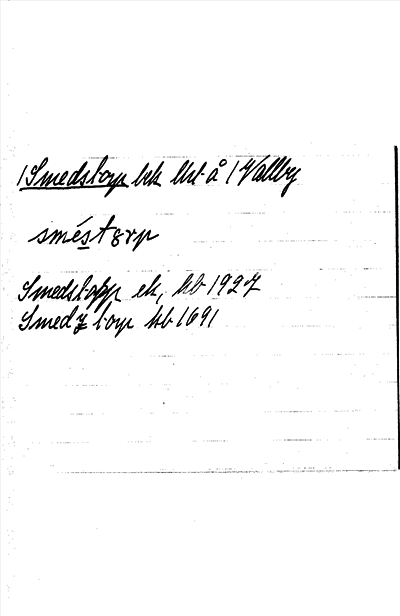 /Smedstorp bek Uvt å /Vallby
sméstɞrp
Smedstopp ek, kb 1927
Smedz torp kb 1691